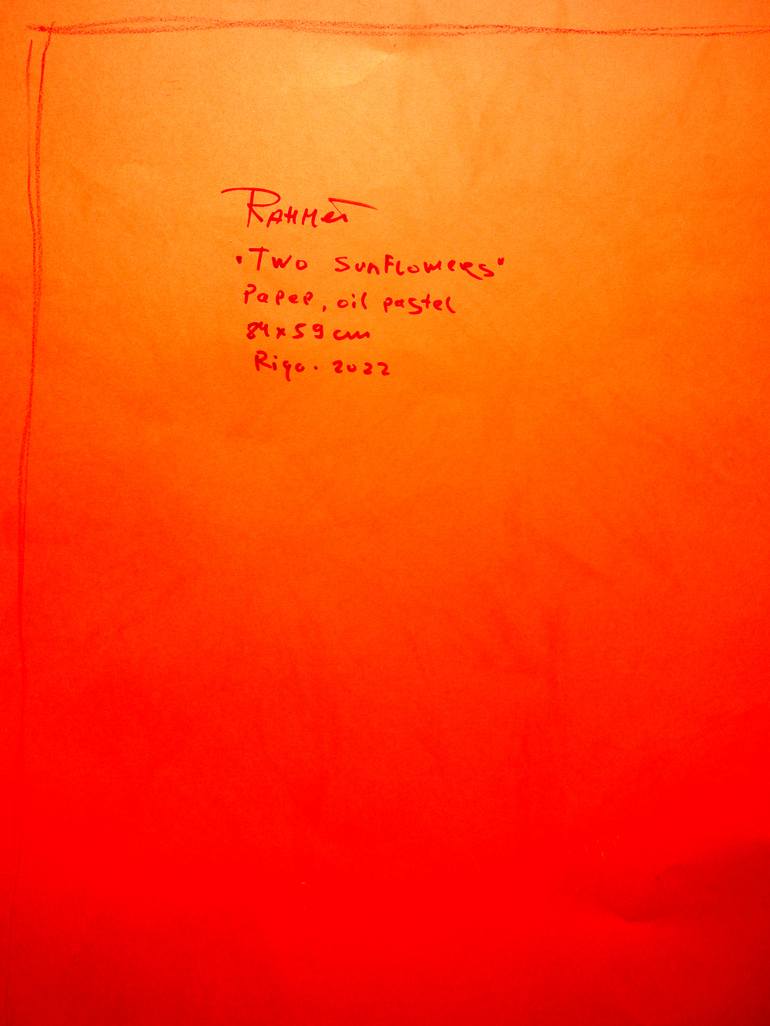 Rahmet
"Two sunflowers"
Paper, oil pastel
84x59 cm
Riga. 2022